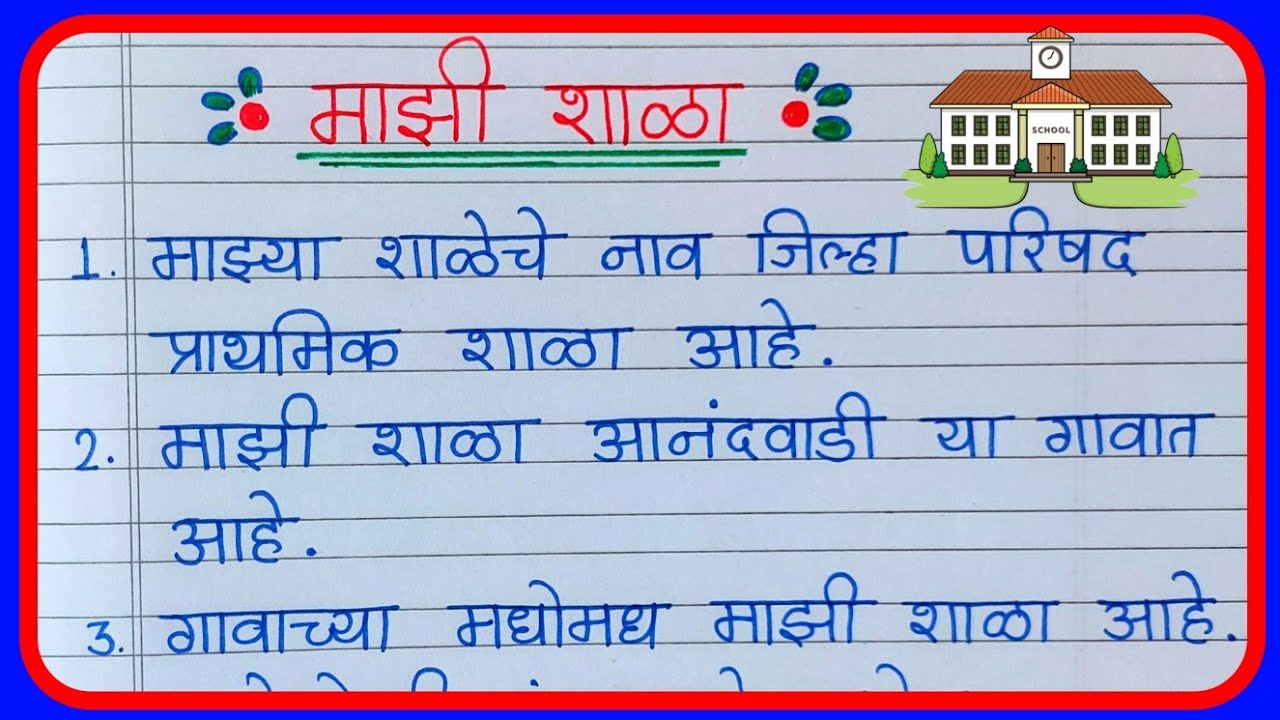 माझी शाळा
SCHOOL
1. माझ्या शाळेचे नाव जिल्हा परिषद
प्राथमिक शाळा आहे.
2. माझी शाळा आनंदवाडी या गावात
आहे.
3. गावाच्या मधोमध माझी शाळा आहे.